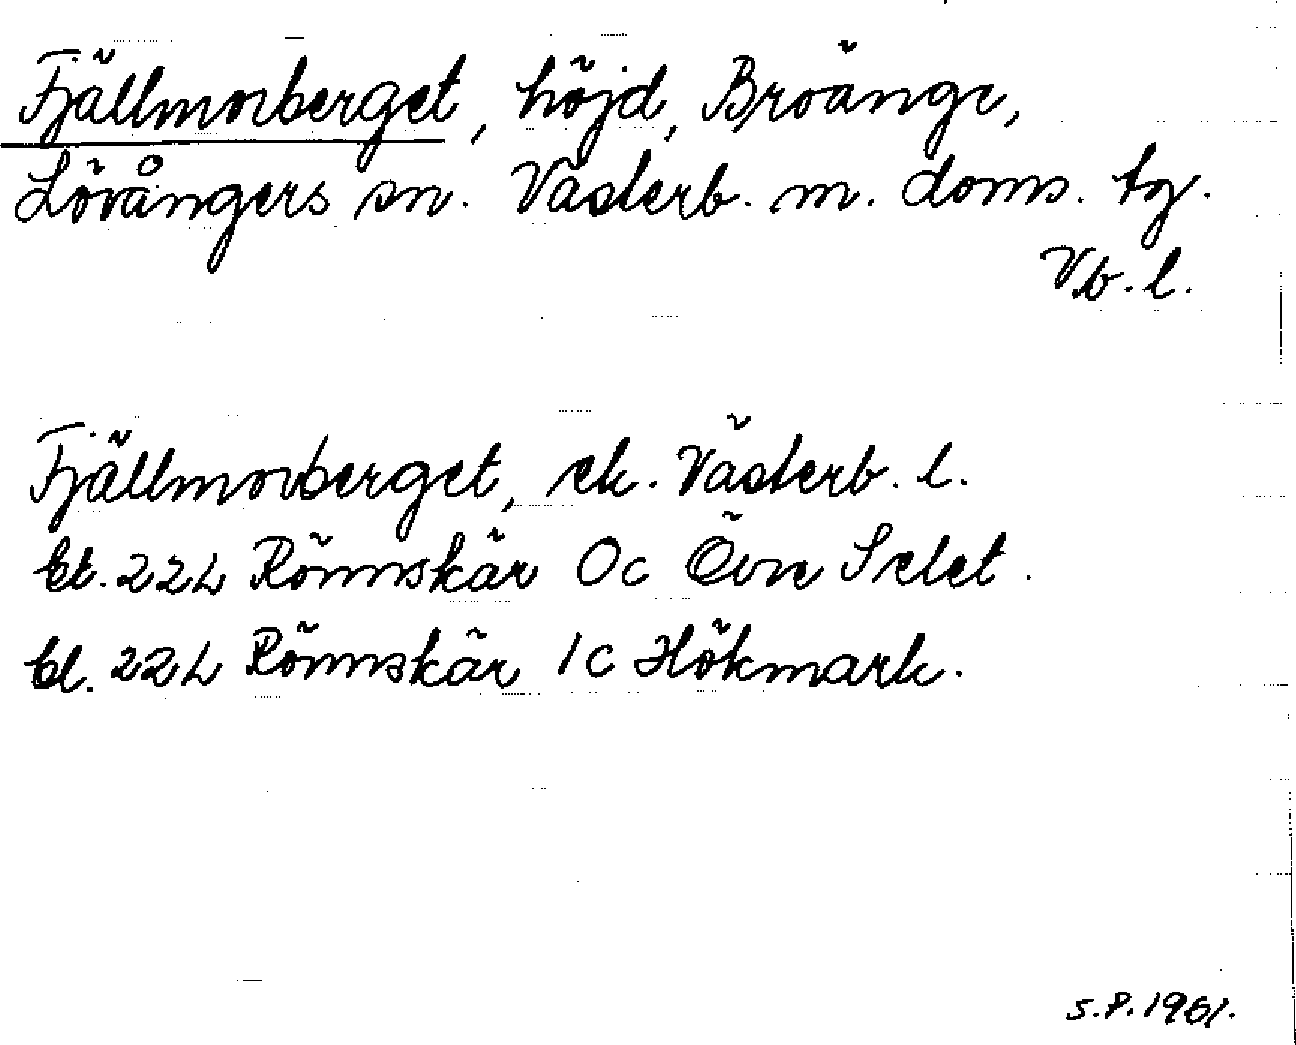 Fjällmorberget, höjd, Broänge,
Lövångers sn. Västerb. m. doms. tg.
Vb. l.
Fjällmorberget, ek. Västerb. l.
bl. 22L Rönnskär 0c Övre Selet.
bl. 22L Rönnskär 1c Hökmark.
S.P. 1961.